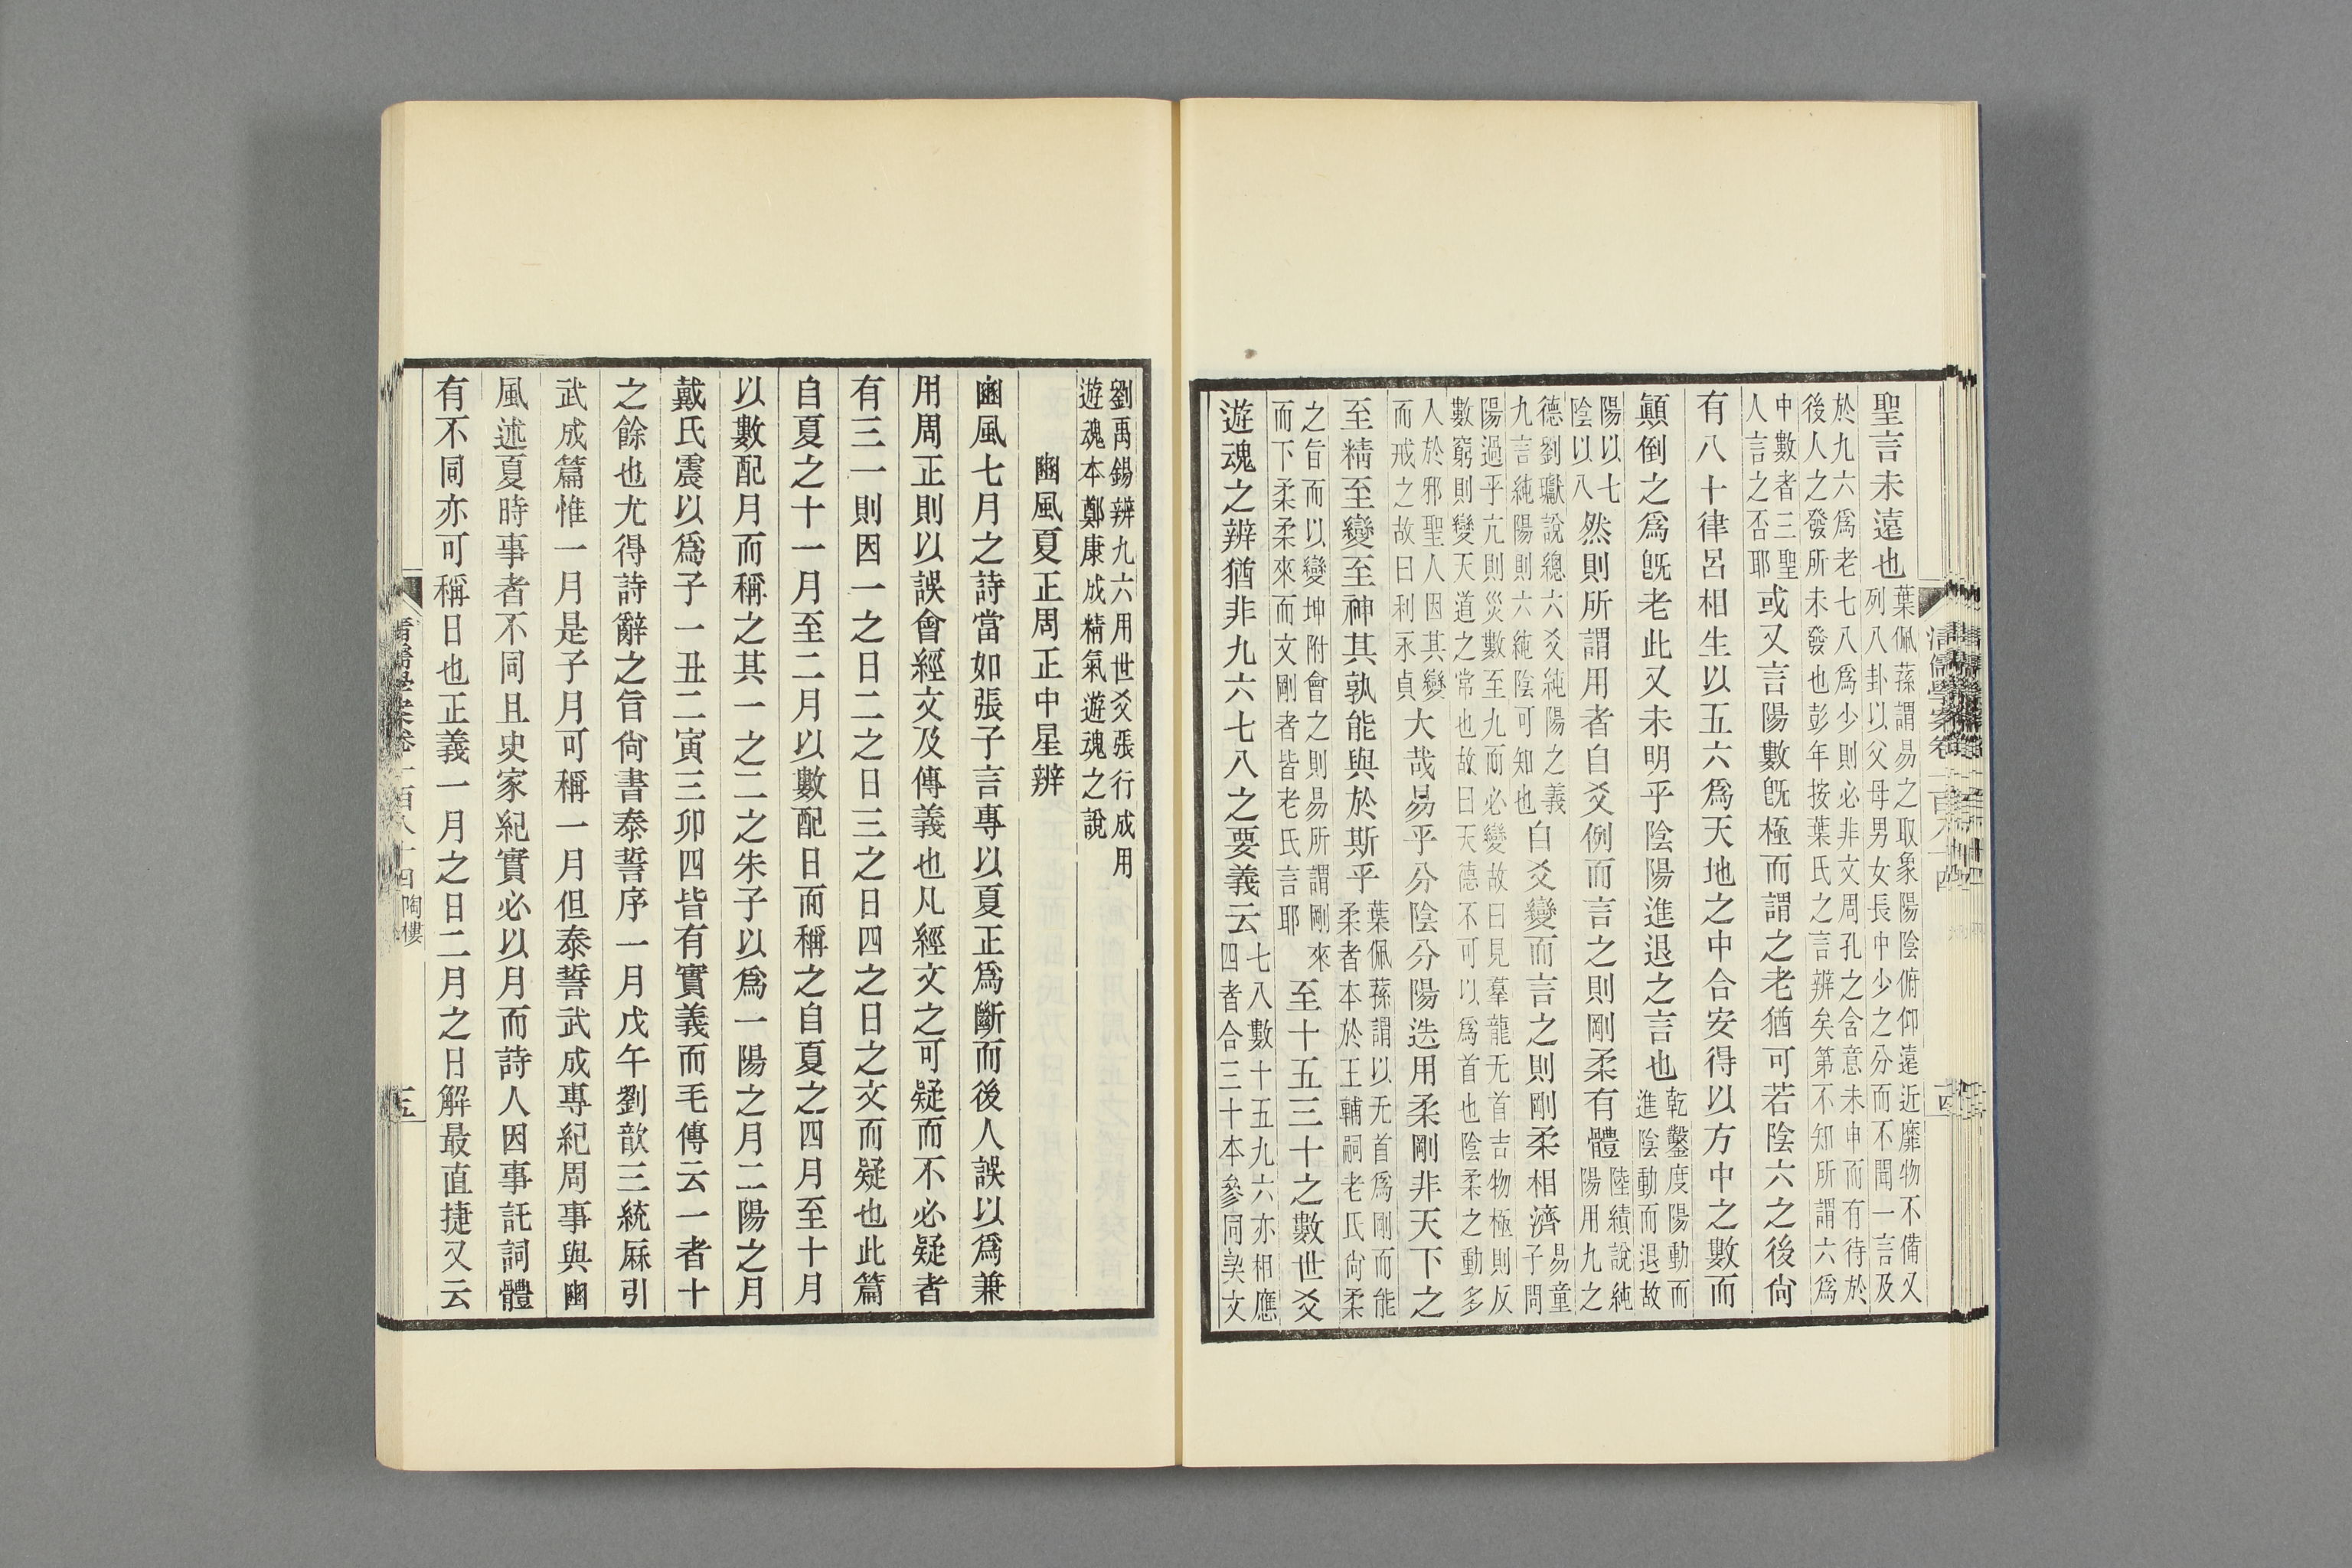 聖言未遠也葉佩蓀謂易之取象陽陰俯仰遠近靡物不備又
列八卦以父母男女長中少之分而不聞一言及
於九六爲老七八爲少則必非文周孔之含意未申而有待於
後人之發所未發也彭年按葉氏之言辨矣第不知所謂六爲
申數者三聖
人言之否耶或又言陽數旣極而謂之老猶可若陰六之後尙
有八十律呂相生以五六爲天地之中合安得以方中之數而
顚倒之爲旣老此又未明乎陰陽進退之言也乾鑿度陽動而
進陰動而退故
陽以七
陰以八然則所謂用者自爻例而言之則剛柔有體陸績說純
陽用九之
德劉瓛說總六爻純陽之義
九言純陽則六純陰可知也自爻變而言之則剛柔相濟易童
子問
陽過乎亢則災數至九而必變故曰見羣龍无首吉物極則反
數窮則變天道之常也故曰天德不可以爲首也陰柔之動多
入於邪聖人因其變
而戒之故曰利永貞大哉易乎分陰分陽迭用柔剛非天下之
至精至變至神其孰能與於斯乎葉佩蓀謂以无首爲剛而能
柔者本於王輔嗣老氏尙柔
之旨而以變坤附會之則易所謂剛來
而下柔柔來而文剛者皆老氏言耶至十五三十之數世爻
遊魂之辨猶非九六七八之要義云七八數十五九六亦相應
四者合三十本參同契文
清儒學案卷一百八十四
十四
劉禹錫辨九六用世爻張行成用
遊魂本鄭康成精氣遊魂之說
豳風夏正周正中星辨
豳風七月之詩當如張子言專以夏正爲斷而後人誤以爲兼
用周正則以誤會經文及傳義也凡經文之可疑而不必疑者
有三一則因一之日二之日三之日四之日之文而疑也此篇
自夏之十一月至二月以數配日而稱之自夏之四月至十月
以數配月而稱之其一之二之朱子以爲一陽之月二陽之月
戴氏震以爲子一丑二寅三卯四皆有實義而毛傳云一者十
之餘也尤得詩辭之旨尙書泰誓序一月戊午劉歆三統厤引
武成篇惟一月是子月可稱一月但泰誓武成專紀周事與豳
風述夏時事者不同且史家紀實必以月而詩人因事託詞體
有不同亦可稱日也正義一月之日二月之日解最直捷又云
清儒學案卷一百八十四 陶樓